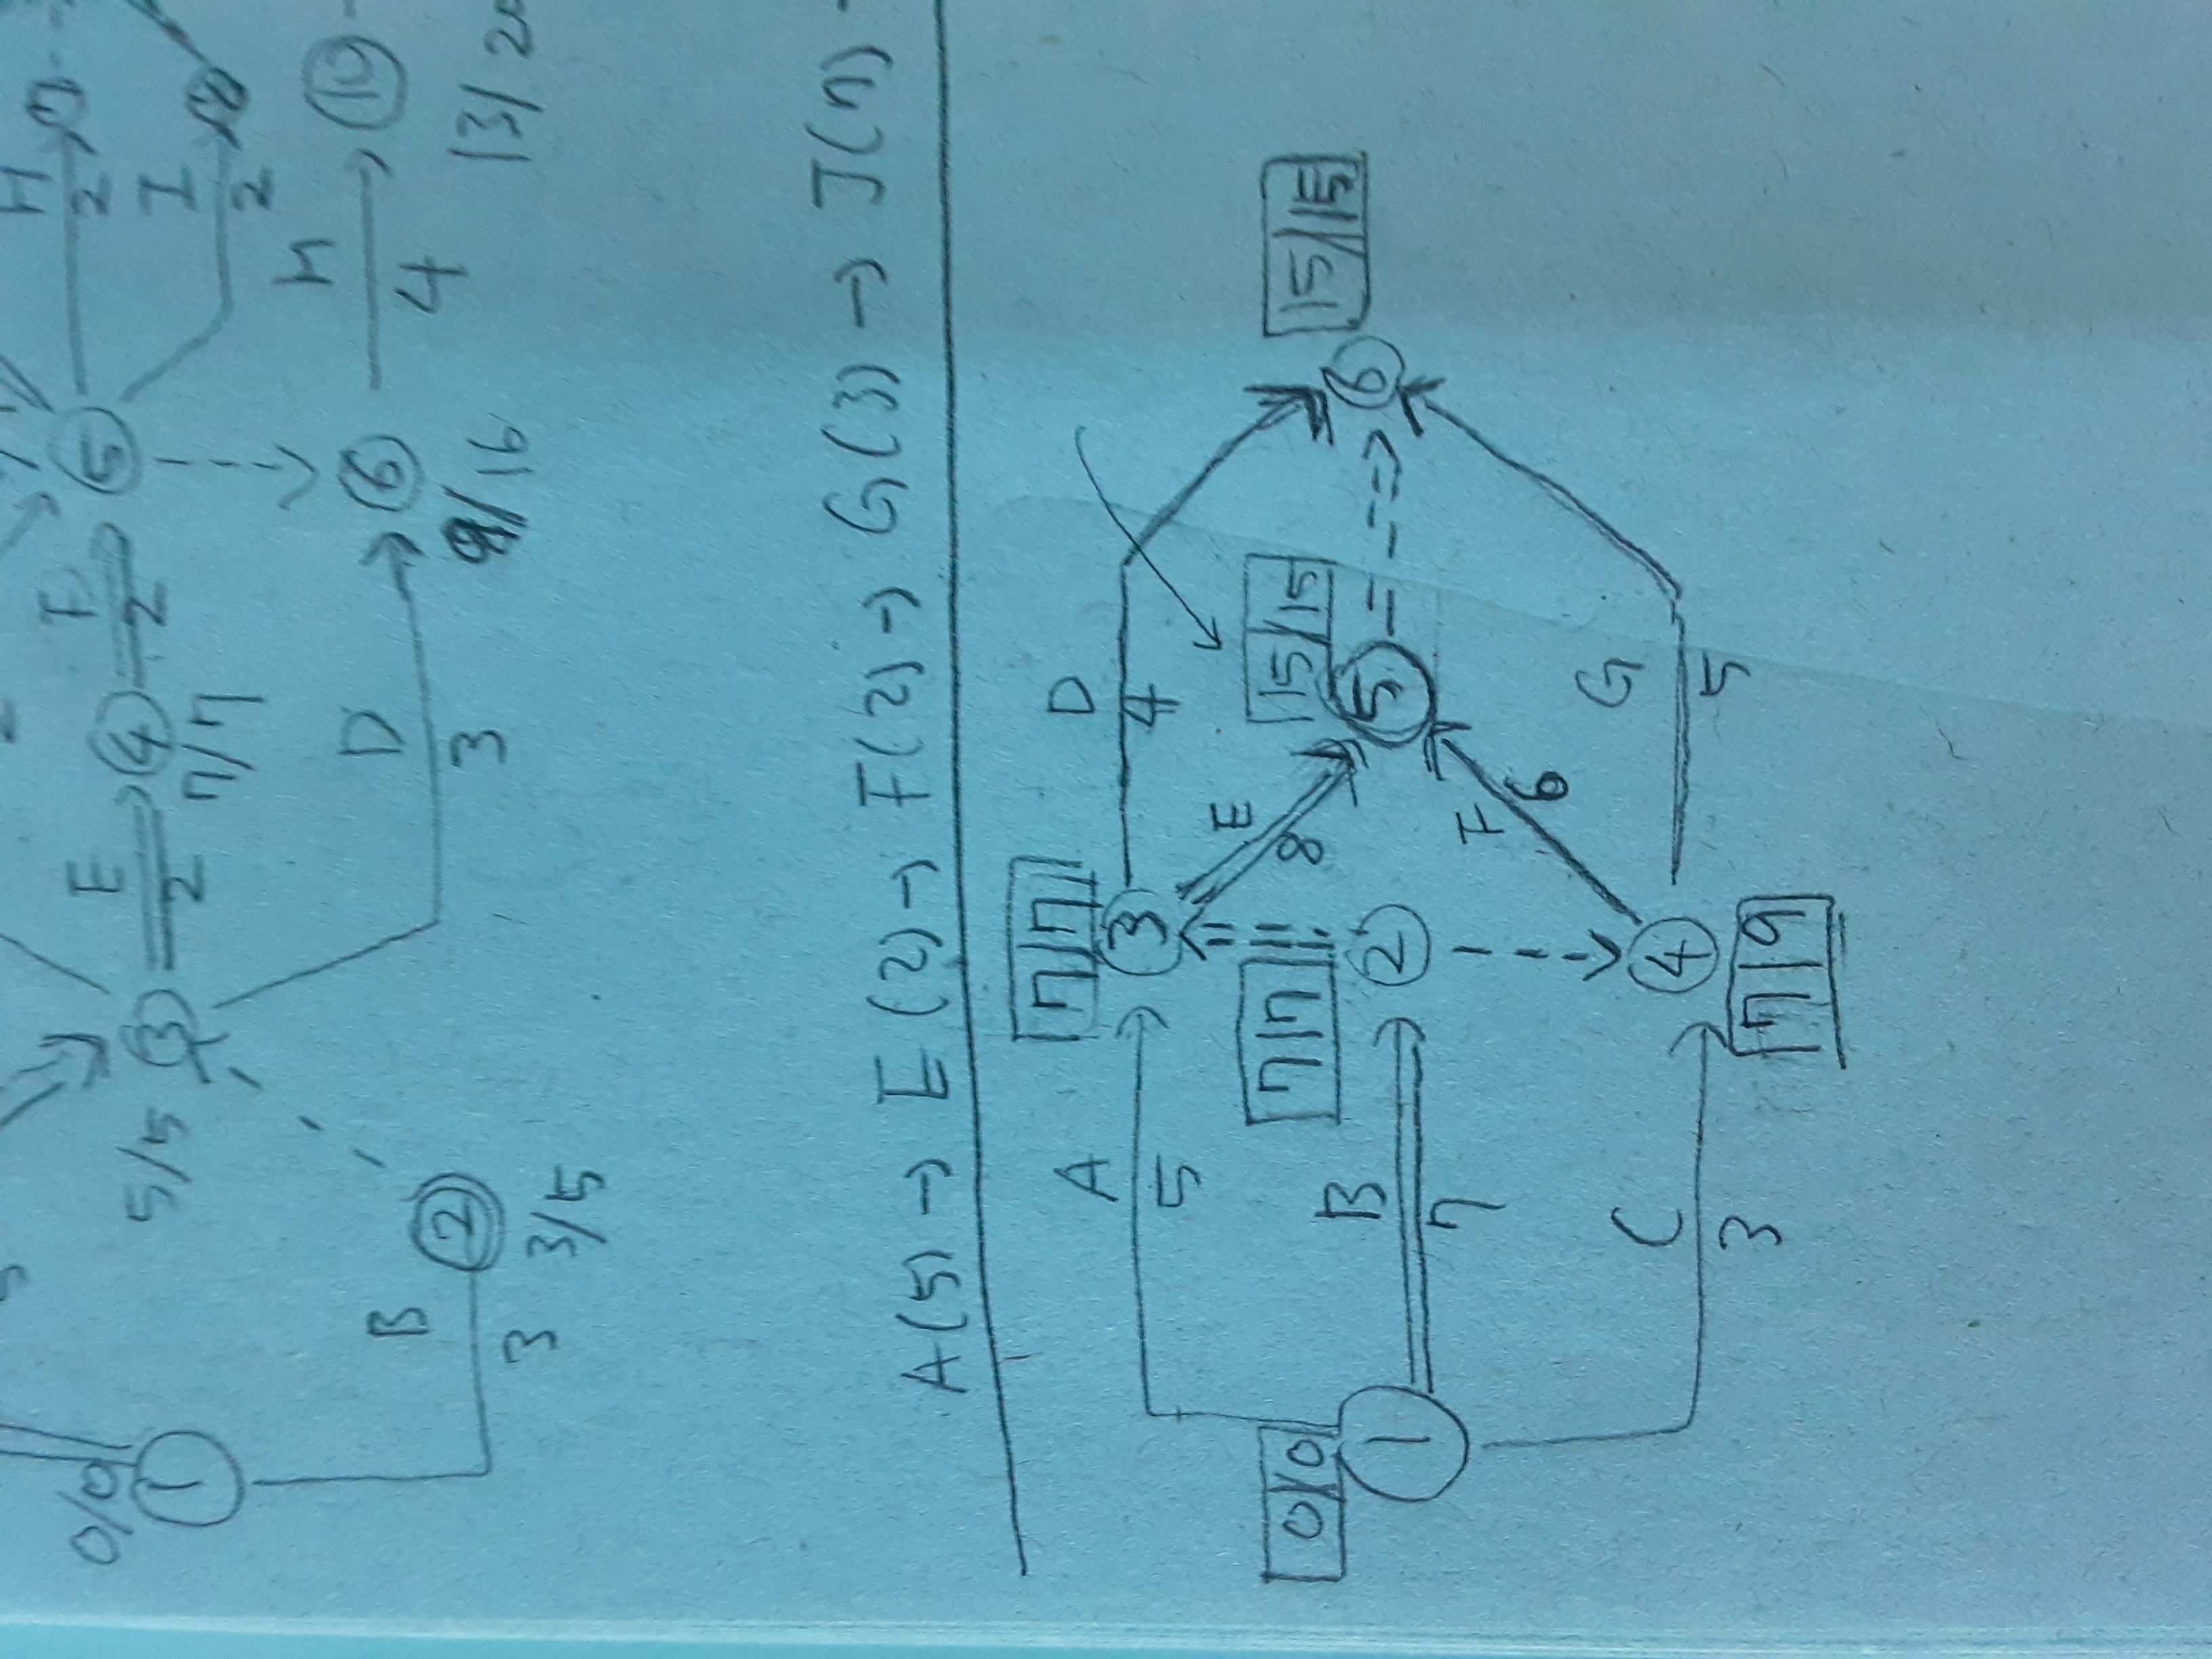 H
2
I
2
H
4
10
13/2
5
6
9/16
F
2
4
7/7
E
2
D
3
3
5/5
2
3/5
B
3
0/0
1
A(5) → E(2) → F(2) → G(3) → J(7) -
A
5
7/7
3
D
4
E
8
0/0
1
B
7
7/7
2
15/15
5
15/15
6
C
3
4
7/9
F
6
G
5